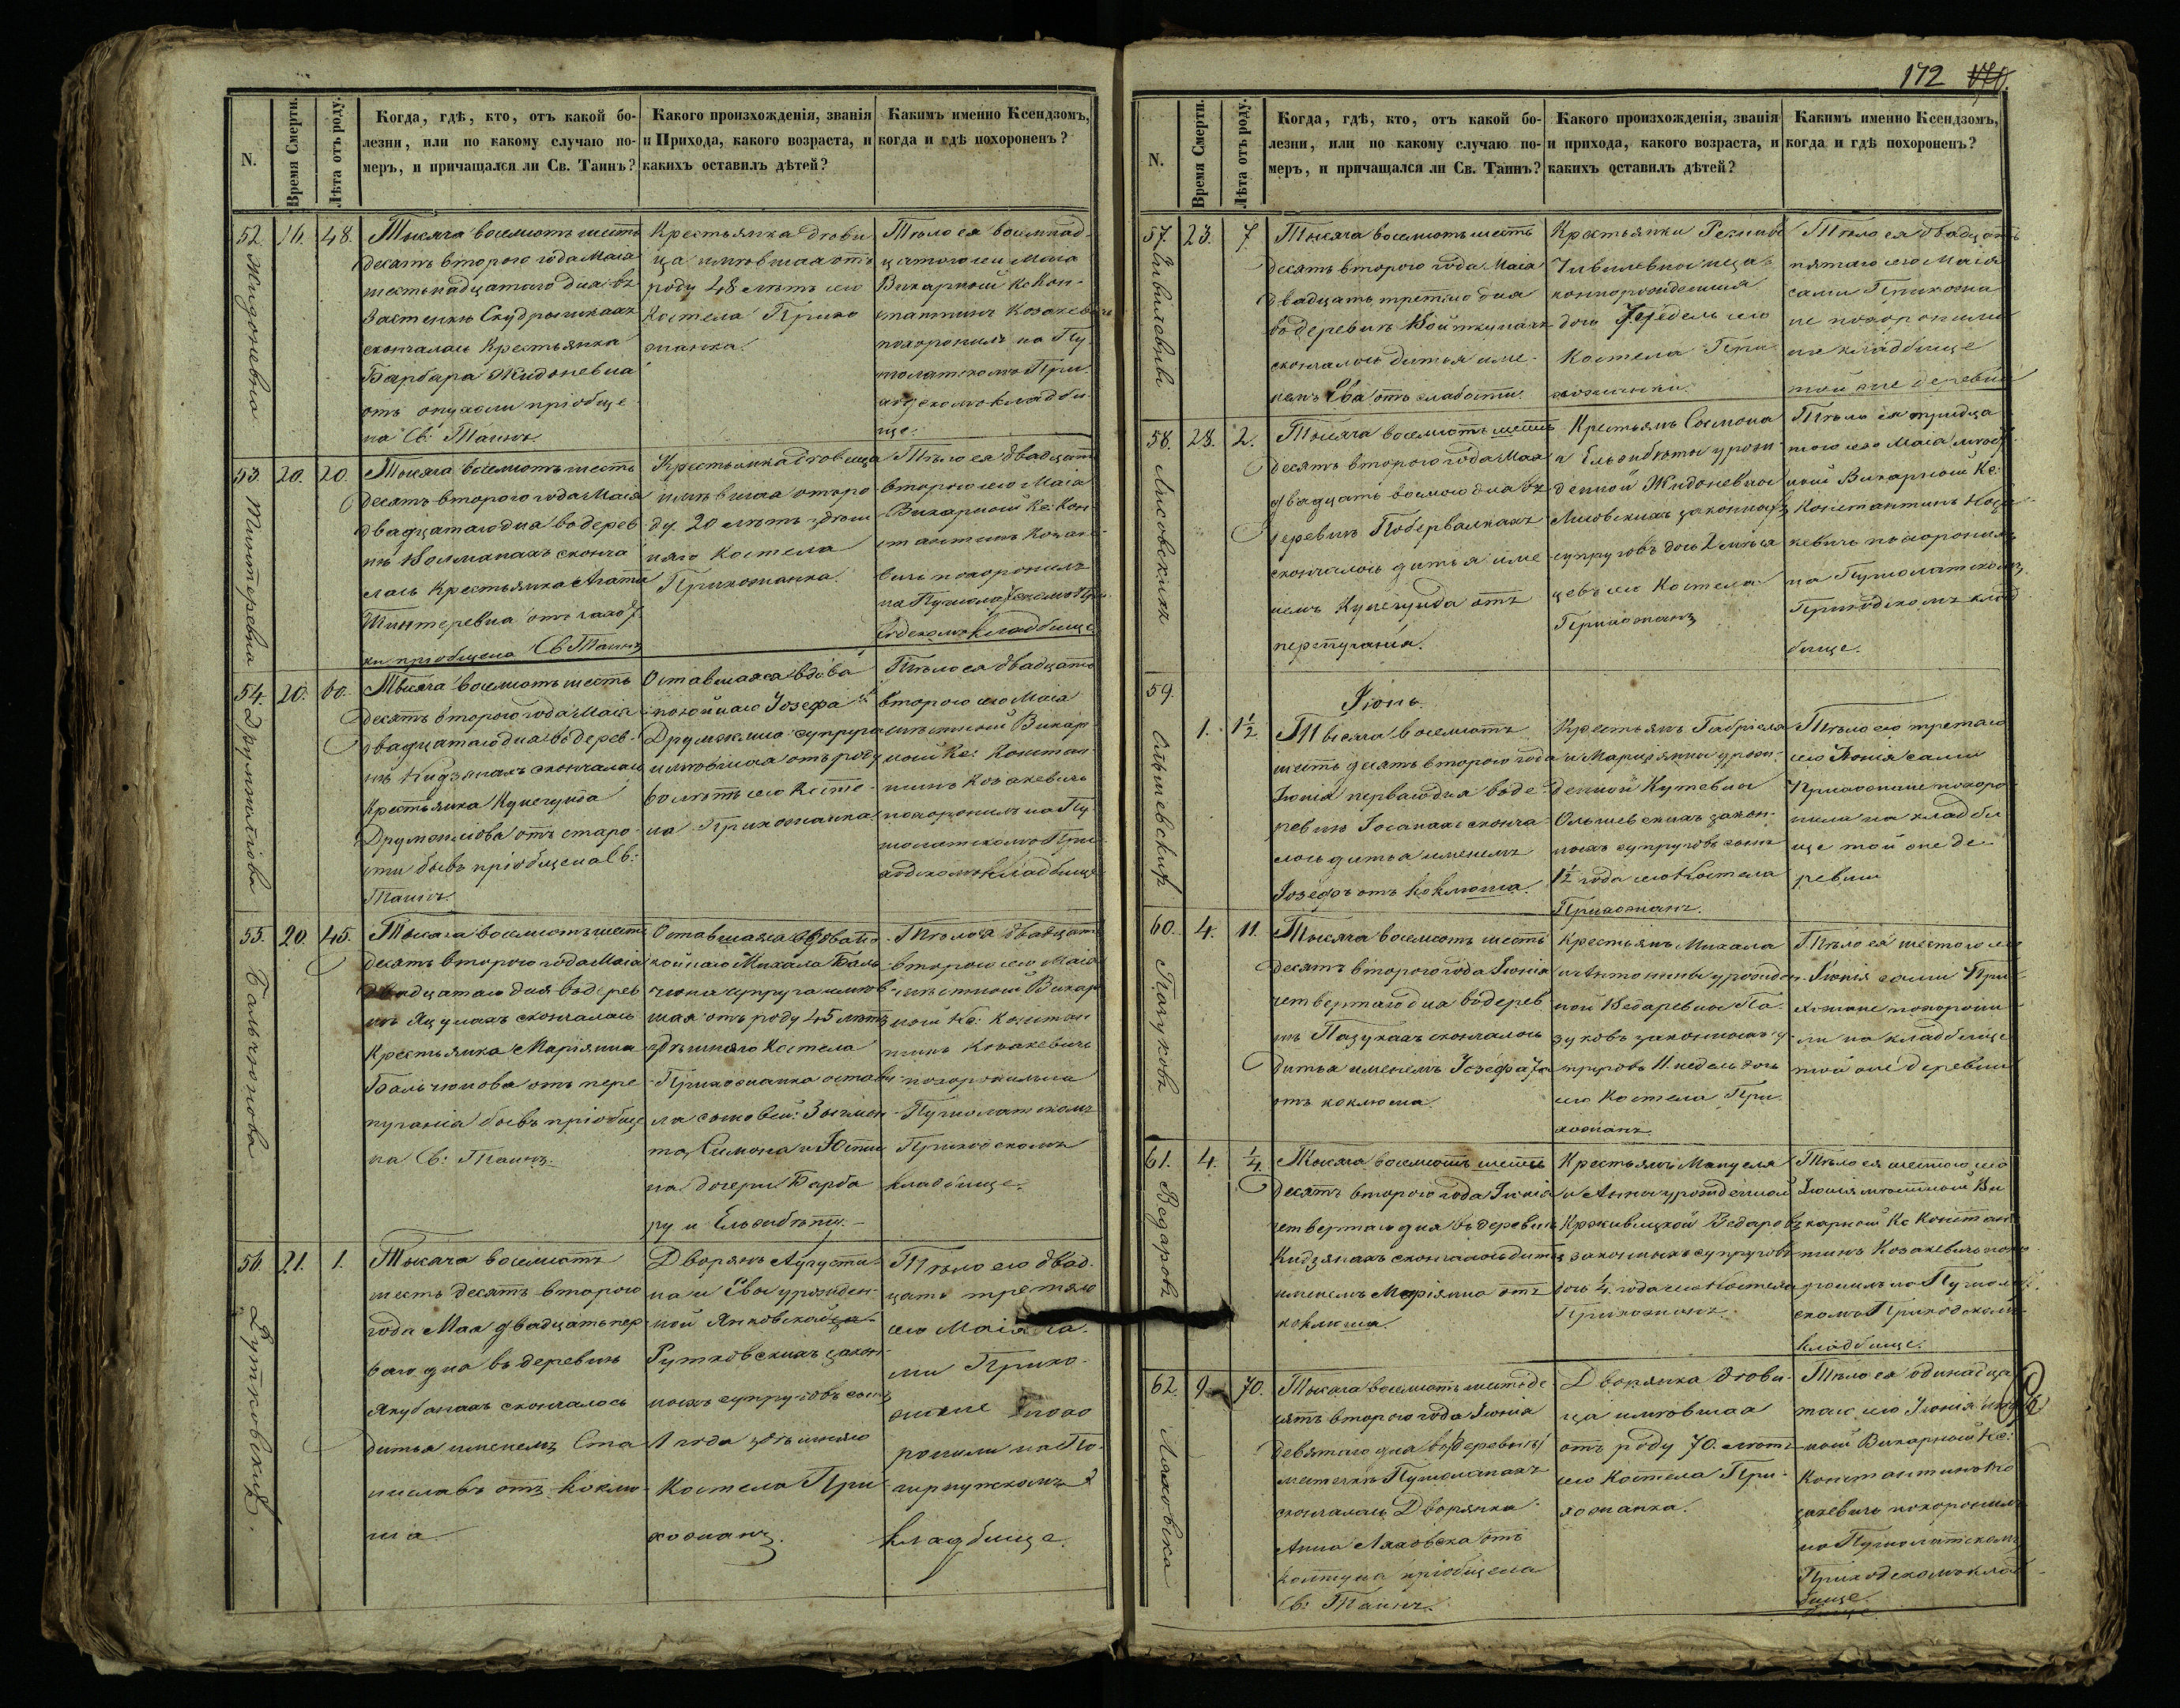 172 170.
N.
Время Смерти.
Лѣта отъ роду.
Когда, гдѣ, кто, отъ какой бо-
лезни, или по какому случаю по-
меръ, и причащался ли Св. Таинъ?
Какого произхожденія, званія
и Прихода, какого возраста, и
какихъ оставилъ дѣтей?
Какимъ именно Ксендзомъ,
когда и гдѣ похороненъ?
52. 16. 48.
Жидоневна
Тысяча восемотъ шесть
десятъ второго года Маія
шестьнадцатаго дня въ
Застенкѣ
скончалась Крестьянка
Барбара Жидоневна
отъ опухоли пріобще
на Св: Таинъ.
Крестьянка дѣви
ца имѣвшая отъ
роду 48 лѣтъ сего
Костела Прихо
жанка.
Тѣло ея восемнад-
цатого сего Маія
Викарный Кс Кон-
стантинъ Козакевичъ
похоронилъ на Пу-
молатскомъ При-
ходскомъ кладби
ще.
53. 20. 20.
Тысяча восемотъ шесть
десятъ второго года Маія
двадцатаго дня въ дерев
нѣ сконча
лась Крестьянка Агата
отъ
ки пріобщена Св Таинъ
Крестьянка дѣвица
имѣвшая отъ ро
ду 20 лѣтъ здѣш
няго Костела
Прихожанка.
Тѣло ея двадцать
второго сего Маія
Викарный Кс: Кон-
стантинъ Козаке-
вичъ похоронилъ
на
ходскомъ кладбище
54. 20. 60.
Тысяча восемотъ шесть
десятъ второго года Маія
двадцатаго дня въ дерев-
нѣ Кидзянахъ скончалась
Крестьянка Кунегунда
отъ старо-
сти бывъ пріобщена Св:
Таинъ.
Оставшаяся вдова
покойнаго Іозефа
супруга
имѣвшая отъ роду
60 лѣтъ сего Косте-
ла Прихожанка.
Тѣло ея двадцать
второго сего Маія
мѣстный Викар-
ный Кс: Констан-
тинъ Козакевичъ
похоронилъ на Пу-
молатскомъ При-
ходскомъ кладбище
55. 20. 45.
Бальчюнова
Тысяча восемотъ шесть
десятъ второго года Маія
двадцатаго дня въ дерев
нѣ Яцунахъ скончалась
Крестьянка Маріянна
Бальчюнова отъ пере
пуганія бывъ пріобще
на Св: Таинъ.
Оставшаяся вдова по
койнаго Михала Баль
чюна супруга имѣв
шая отъ роду 45 лѣтъ
здѣшняго Костела
Прихожанка остави
ла сыновей: Зыгмон
та, Симона и Юсти
на дочери Барба
ру и Ельзибѣту.
Тѣло ея двадцать
второго сего Маія
мѣстный Викар
ный Кс: Констан
тинъ Козакевичъ
похоронилъ на
Пумолатскомъ
Приходскомъ
кладбище.
56. 21. 1.
Рутковскій.
Тысяча восемотъ
шесть десятъ второго
года Мая двадцать пер
ваго дня въ деревнѣ
Якубанахъ скончалось
дитья именемъ Ста
ниславъ отъ коклю
ша.
Дворянъ Августи-
на и Евы урожден-
ной Янковской
Рутковскихъ закон-
ныхъ супруговъ сынъ
1 года здѣшняго
Костела При
хожанъ.
Тѣло его двад-
цать третяго
сего Маія са-
ми Прихо-
жане похо
ронили на
кладбище.
N.
Время Смерти.
Лѣта отъ роду.
Когда, гдѣ, кто, отъ какой бо-
лезни, или по какому случаю по-
меръ, и причащался ли Св. Таинъ?
Какого произхожденія, званія
и прихода, какого возраста, и
какихъ оставилъ дѣтей?
Какимъ именно Ксендзомъ,
когда и гдѣ похороненъ?
57. 23. 7
Чивилевна
Тысяча восемотъ шесть
десятъ второго года Маія
двадцать третяго дня
въ деревнѣ Войткунахъ
скончалось дитья име-
немъ Ева отъ слабости.
Крестьянки
Чивилевны
дочь 7 недель сего
Костела При-
хожанки.
Тѣло ея двадцать
пятаго сего Маія
сами Прихожа
не похоронили
на кладбище
той же деревни
58. 28. 2.
Лисовскихъ
Тысяча восемотъ шесть
десятъ второго года Мая
двадцать восмого дня въ
деревнѣ Побервалкахъ
скончалось дитья име
немъ Кунегунда отъ
перепуганія.
Крестьянъ Сымона
и Ельзибѣты урож
денной Жидоневны
Лисовскихъ законныхъ
супруговъ дочь 2 мѣся
цевъ сего Костела
Прихожанъ
Тѣло ея тридца
того сего Маія мѣст
ный Викарный Кс:
Константинъ Коза
кевичъ похоронилъ
на Пумолатскомъ
Приходскомъ клад
бище.
Іюнь.
59. 1. 1½
Ольшевскій
Тысяча восемотъ
шесть десятъ второго года
Іюнія перваго дня въ де-
ревнѣ сконча-
лось дитья именемъ
Іозефъ отъ коклюша.
Крестьянъ Габріеля
и Маріянны урож-
денной Кутевны
Ольшевскихъ закон-
ныхъ супруговъ сынъ
1½ года сего Костела
Прихожанъ.
Тѣло его третяго
сего Іюнія сами
Прихожане похоро
нили на кладби
ще той же де-
ревни
60. 4. 11.
Пазуковъ
Тысяча восемотъ шесть
десятъ второго года Іюнія
четвертаго дня въ дерев
нѣ Пазукахъ скончалось
дитья именемъ Іозефата
отъ коклюша.
Крестьянъ Михала
и Антонины урожден
ной Ведаревны Па-
зуковъ законныхъ су
пруговъ 11 недель дочь
сего Костела При
хожанъ.
Тѣло ея шестого сего
Іюнія сами При-
хожане похорони
ли на кладбище
той же деревни
61. 4. ¼
Ведаровъ
Тысяча восемотъ шесть
десятъ второго года Іюнія
четвертаго дня въ деревнѣ
Кидзянахъ скончалось дитья
именемъ Маріянна отъ
коклюша.
Крестьянъ Мануеля
и Анны урожденной
Крживицкой Ведаровъ
законныхъ супруговъ
дочь ¼ года сего Костела
Прихожанъ.
Тѣло ея шестого сего
Іюнія мѣстный Ви
карный Кс Констан
тинъ Козакевичъ похо
ронилъ на Пумолат
скомъ Приходскомъ
кладбище.
62. 9. 70.
Ляховска
Тысяча восемотъ шестьде
сятъ второго года Іюнія
девятаго дня въ деревнѣ
местечкѣ
скончалась Дворянка
Анна Ляховска отъ
колтуна пріобщена
Св: Таинъ.
Дворянка дѣви-
ца имѣвшая
отъ роду 70. лѣтъ
сего Костела При-
хожанка.
Тѣло ея одинадца
таго сего Іюнія мѣст
ный Викарный Кс:
Константинъ Ко
закевичъ похоронилъ
на Пумолатскомъ
Приходскомъ клад
бище.